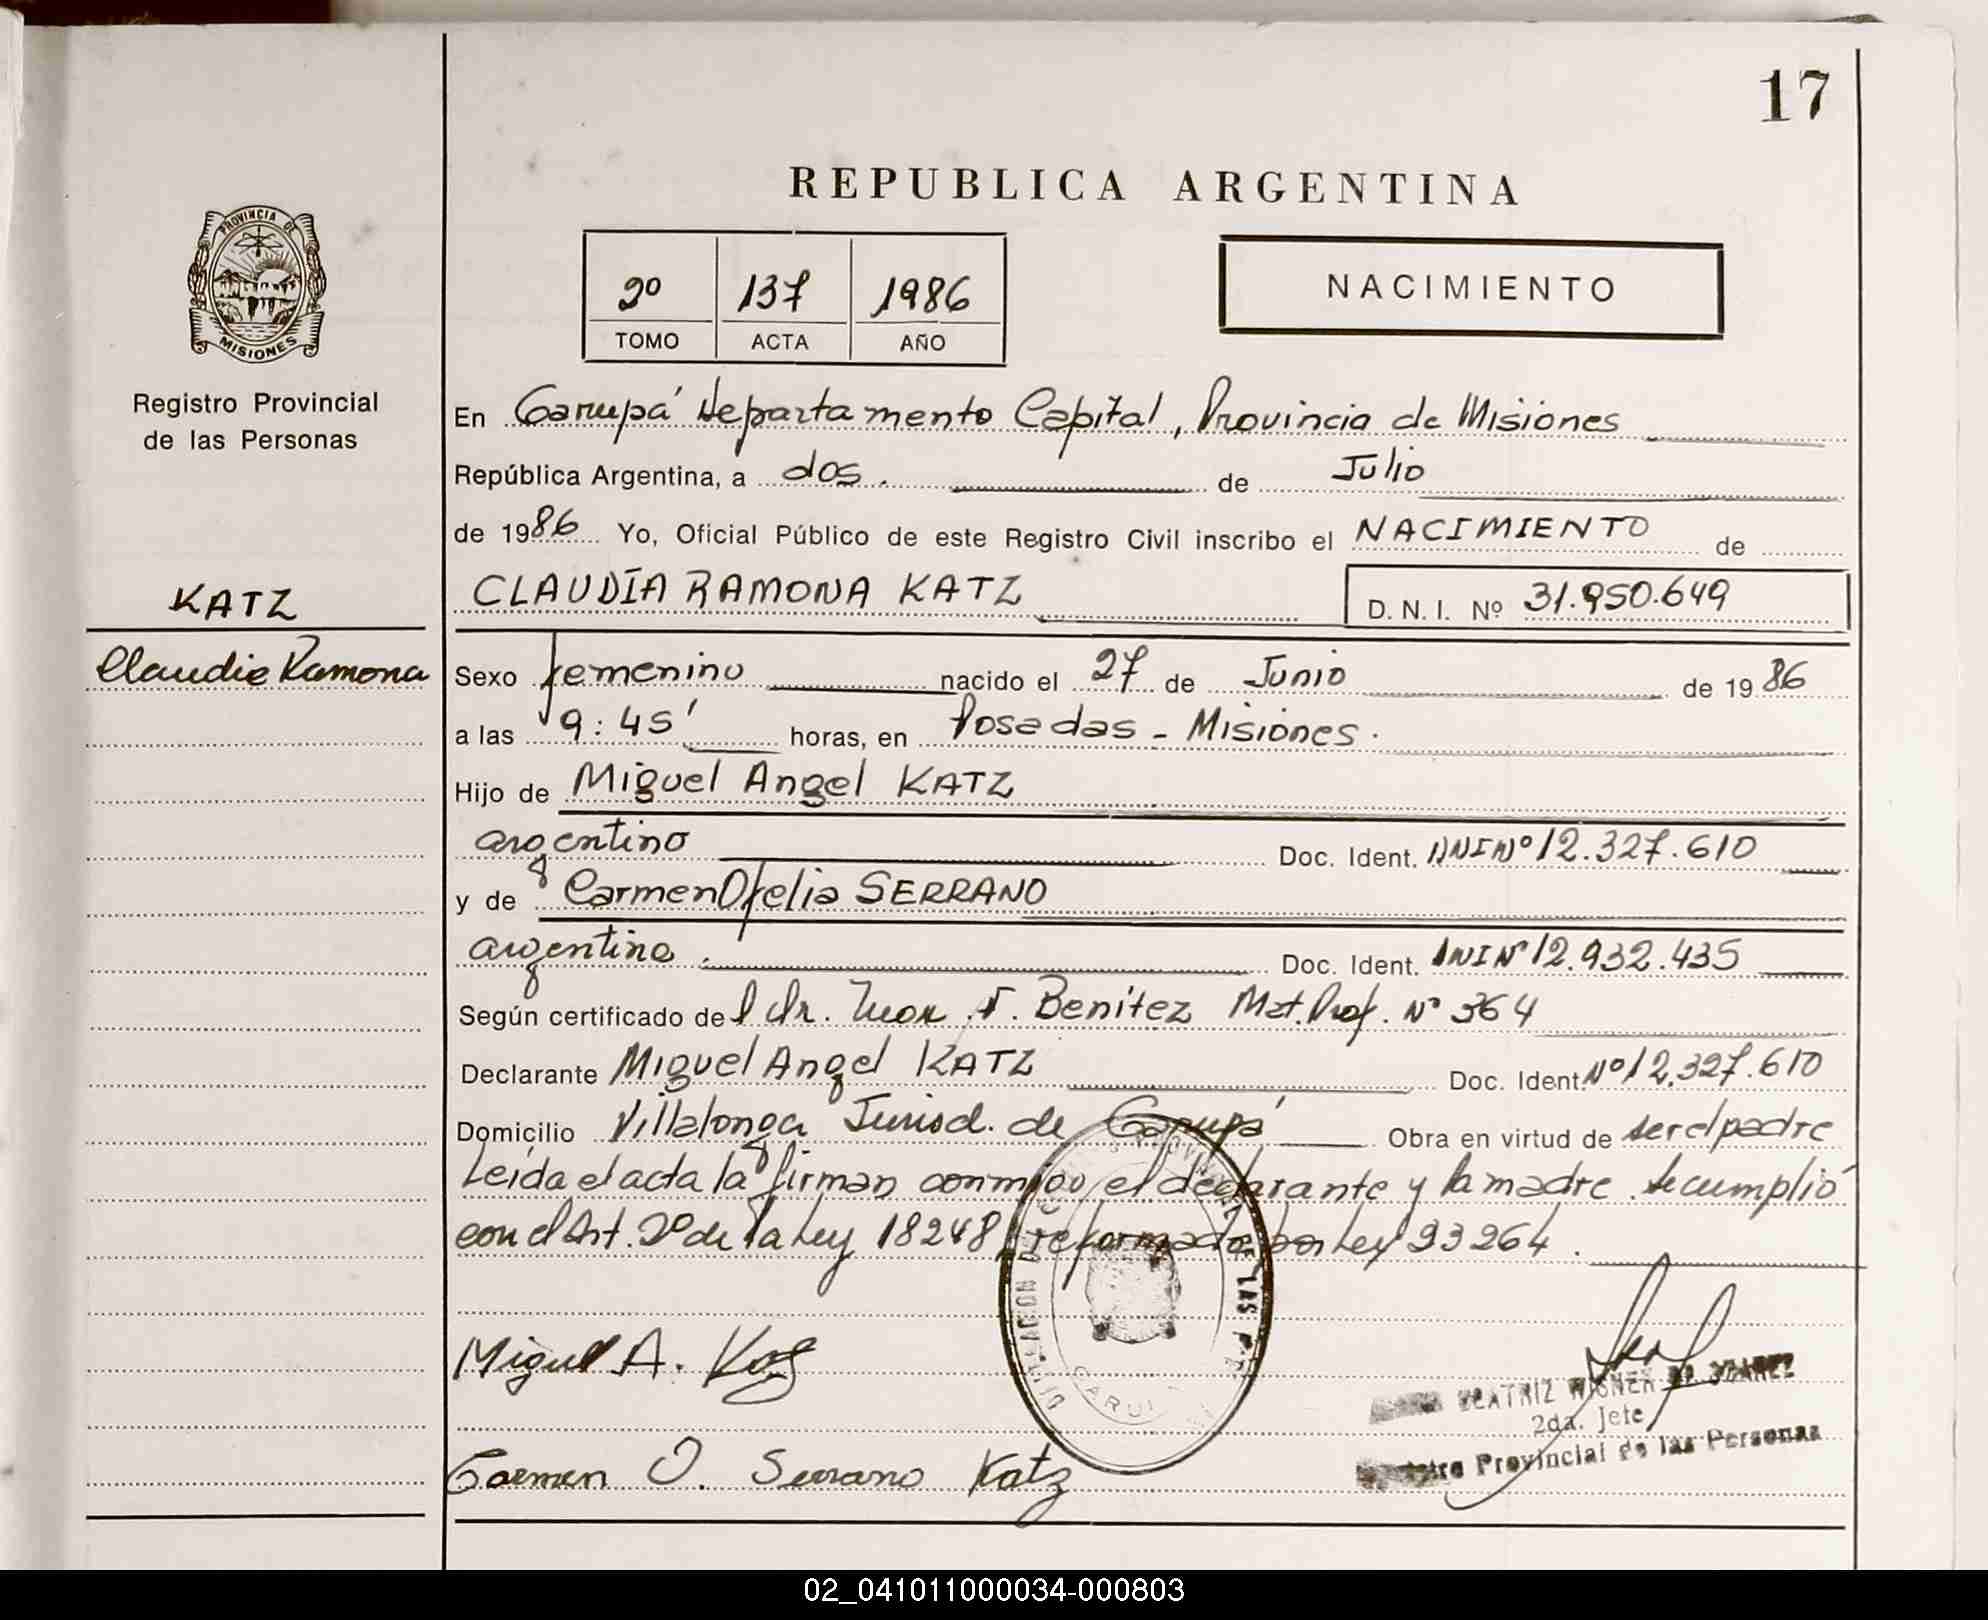 17
REPUBLICA ARGENTINA
PROVINCIA DE
MISIONES
Registro Provincial
de las Personas
2º 137 1986
TOMO ACTA AÑO
NACIMIENTO
En Garupá Departamento Capital, Provincia de Misiones
República Argentina, a dos. de Julio
de 1986 Yo, Oficial Público de este Registro Civil inscribo el NACIMIENTO de
KATZ
CLAUDIA RAMONA KATZ D.N.I. Nº 31.950.649
Claudia Ramona
Sexo femenino nacido el 27 de Junio de 1986
a las 9:45' horas, en Posadas - Misiones.
Hijo de Miguel Angel KATZ
argentino Doc. Ident. DNI Nº 12.327.610
y de Carmen Ofelia SERRANO
argentina. Doc. Ident. DNI Nº 12.932.435
Según certificado del dr. Juan Benitez Mat. Prof. Nº 364
Declarante Miguel Angel KATZ Doc. Ident Nº 12.327.610
Domicilio Villalonga Jurisd. de Garupá Obra en virtud de ser el padre
Leída el acta la firman conmigo el declarante y la madre. Se cumplió
con el Art. 2º de la Ley 18248 reformado por Ley 23264.
Miguel A. Katz
BEATRIZ DE
2da. Jefe
Provincial de las Personas
Carmen O. Serrano Katz
02_041011000034-000803